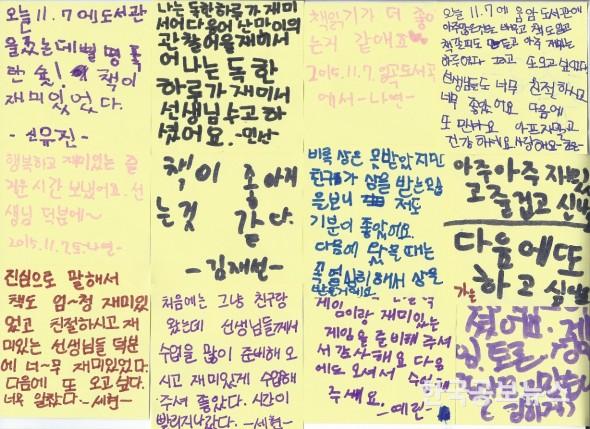 오늘 11.7 에 도서관
을 왔는데 삘 명 폭
탄 숯! 책이
재미있었다.
-손유진-
나는 독한 하루가 재미
서어 다음어 난 마이의
관찰어을 재해서
어 나는 독한
하루가 재미서
선생님 수고 하
셨어요. -민난
책읽기가 더 좋아
는거 같애요
2015.11.7 도서곡
에서 -나연-
오늘 11.7에 음암도서관에
책도 읽고
하루였다 그리고 또오고 싶었다.
선생님들도 너무 친절하시고
너무 좋았어요 다음에
또 만나요 아프지말고
건강하
행복하고 재미있는 즐
거운 시간 보냈어요. 선
생님 덕분에~
2015.11.7.토.나연-
책이 좋아지
는것 같다.
-김재선-
비록 상은 못받았지만
친구가 상을 받는모습
을보니 저도
기분이 좋았어요.
다음에 왔을때는
꼭 열심히해서 상을
받을거에요.
아주아주재밌
고즐겁고 신나
다음에또
하고 싶
가는
진심으로 말해서
책도 엄~청 재미있
었고 친절하시고 재
미있는 선생님들 덕분
에 너~무 재미있었다.
다음에 또 오고 싶다.
너무 알찼다. -세현-
처음에는 그냥 친구랑
왔는데 선생님들께서
수업을 많이 준비해 오
시고 재미있게 수업해
주셔 좋았다. 시간이
빨리지나갔다. -세현-
게임이랑 재미있는
게임을 준비해 주
서 감사해요 다음
에도 오셔서 수업해
주세요.
-예린-
셨어요. 게
임. 토론